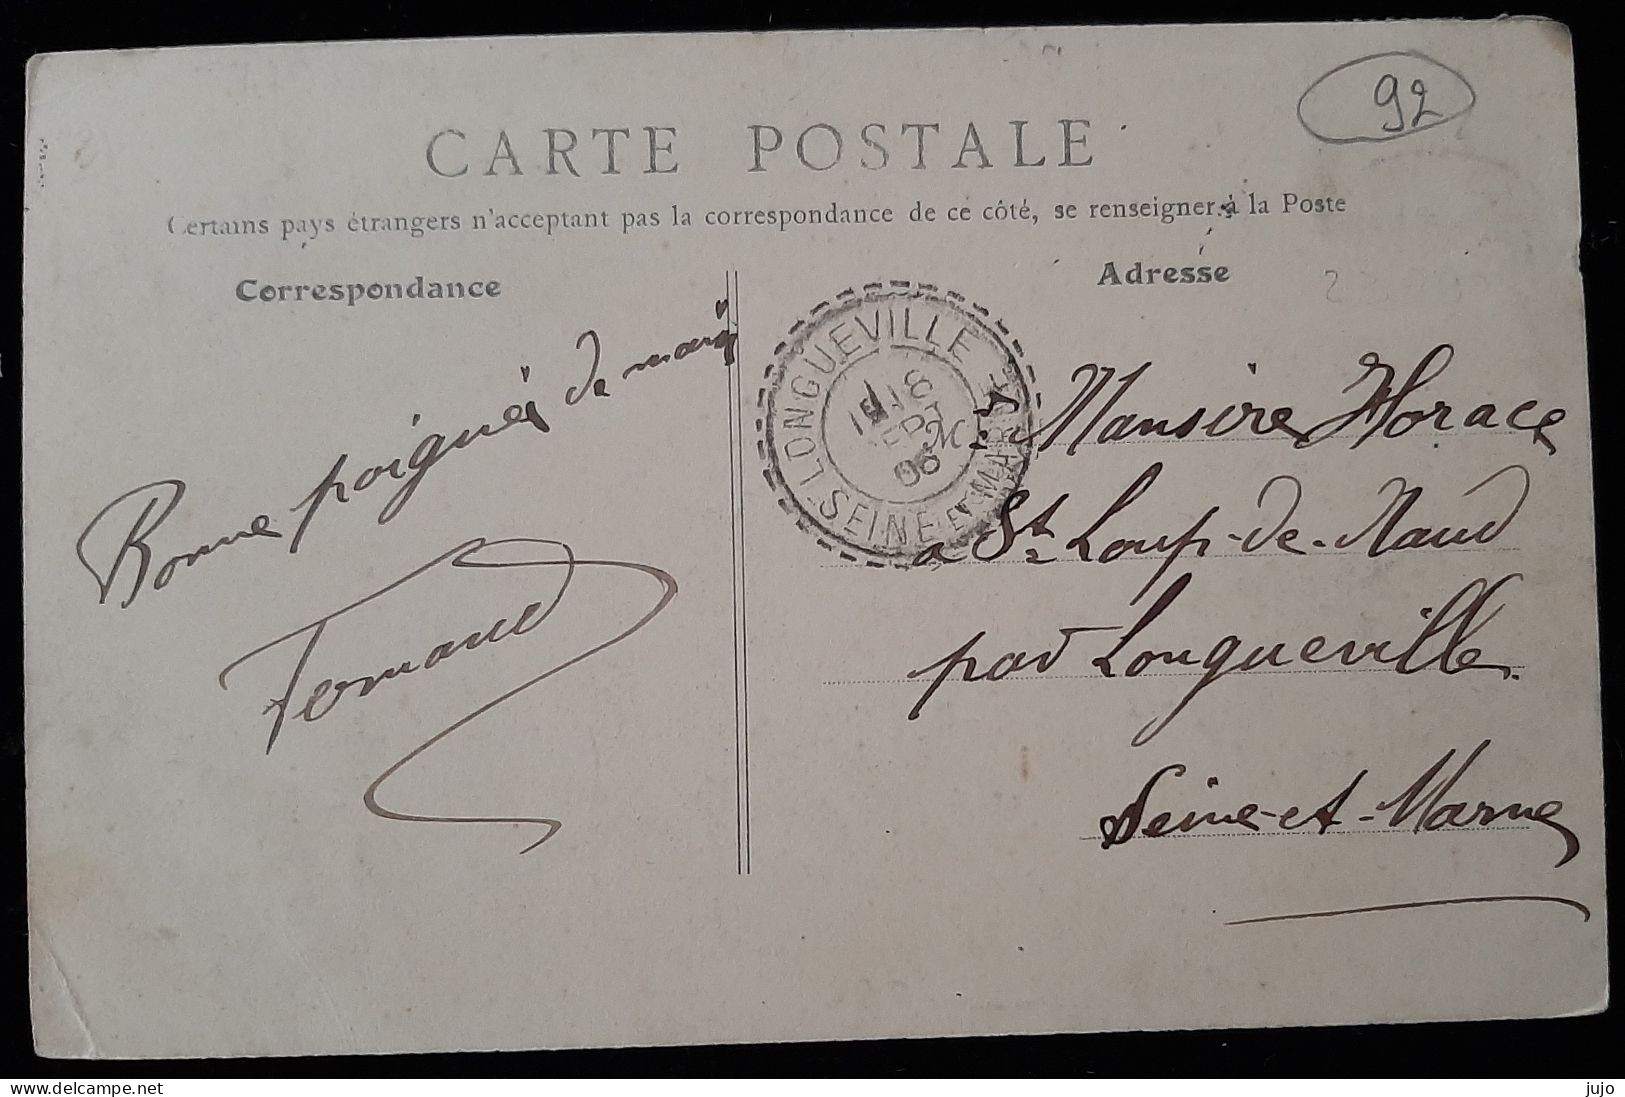 92
CARTE POSTALE
Certains pays étrangers n'acceptant pas la correspondance de ce côté, se renseigner à la Poste
Correspondance
Bonne poignée de main
Fernand
Adresse
LONGUEVILLE
SEINE ET MARNE
8
SEPT
06
Mr Mansire Horace
a St Loup-de-Naud
par Longueville
Seine-et-Marne
www.delcampe.net
jujo